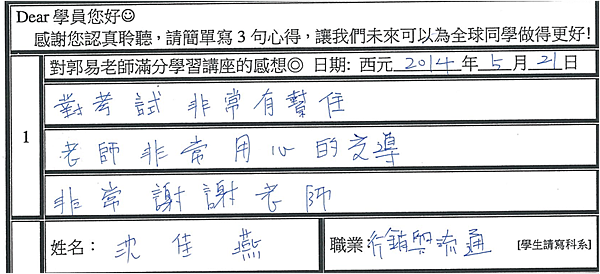 Dear 學員您好☺
感謝您認真聆聽，請簡單寫 3 句心得，讓我們未來可以為全球同學做得更好!
對郭易老師滿分學習講座的感想◎ 日期: 西元 2014 年 5 月 21 日
1
對考試非常有幫住
老師非常用心的交導
非常謝謝老師
姓名： 沈佳燕 職業：行銷與流通 [學生請寫科系]